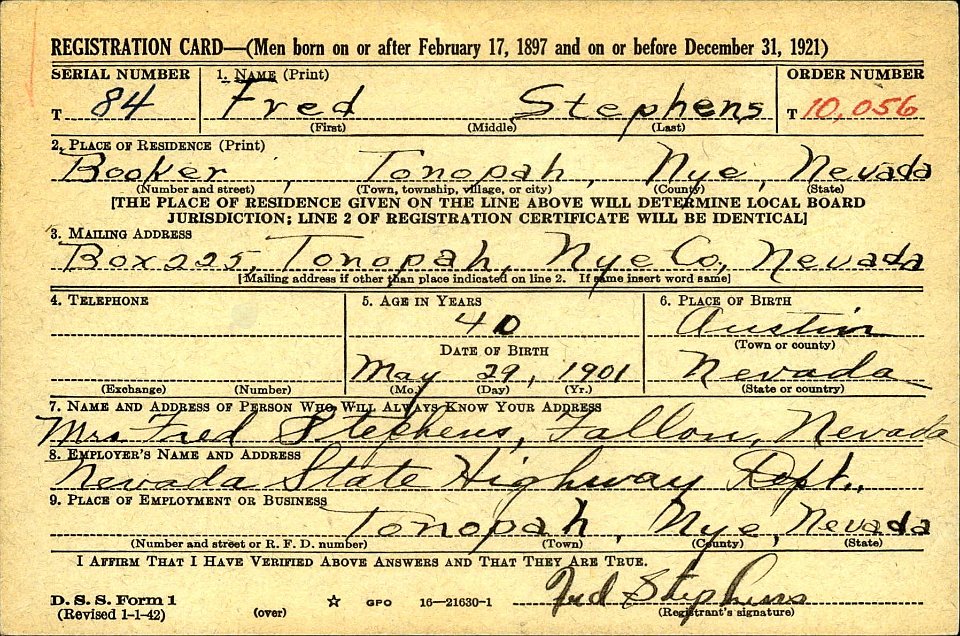 REGISTRATION CARD—(Men born on or after February 17, 1897 and on or before December 31, 1921)
SERIAL NUMBER 1. NAME (Print) ORDER NUMBER
T 84 Fred Stephens T 10,056
(First) (Middle) (Last)
2. PLACE OF RESIDENCE (Print)
Booker, Tonopah, Nye, Nevada
(Number and street) (Town, township, village, or city) (County) (State)
[THE PLACE OF RESIDENCE GIVEN ON THE LINE ABOVE WILL DETERMINE LOCAL BOARD
JURISDICTION; LINE 2 OF REGISTRATION CERTIFICATE WILL BE IDENTICAL]
3. MAILING ADDRESS
Box 225, Tonopah, Nye Co, Nevada
[Mailing address if other than place indicated on line 2. If same insert word same]
4. TELEPHONE 5. AGE IN YEARS 6. PLACE OF BIRTH
40 Austin
DATE OF BIRTH (Town or county)
May 29, 1901 Nevada
(Exchange) (Number) (Mo.) (Day) (Yr.) (State or country)
7. NAME AND ADDRESS OF PERSON WHO WILL ALWAYS KNOW YOUR ADDRESS
Mrs Fred Stephens, Fallon, Nevada
8. EMPLOYER'S NAME AND ADDRESS
Nevada State Highway Dept.,
9. PLACE OF EMPLOYMENT OR BUSINESS
Tonopah, Nye, Nevada
(Number and street or R. F. D. number) (Town) (County) (State)
I AFFIRM THAT I HAVE VERIFIED ABOVE ANSWERS AND THAT THEY ARE TRUE.
Fred Stephens
D. S. S. Form 1
(Revised 1-1-42) (over) ☆ GPO 16—21630-1 (Registrant's signature)